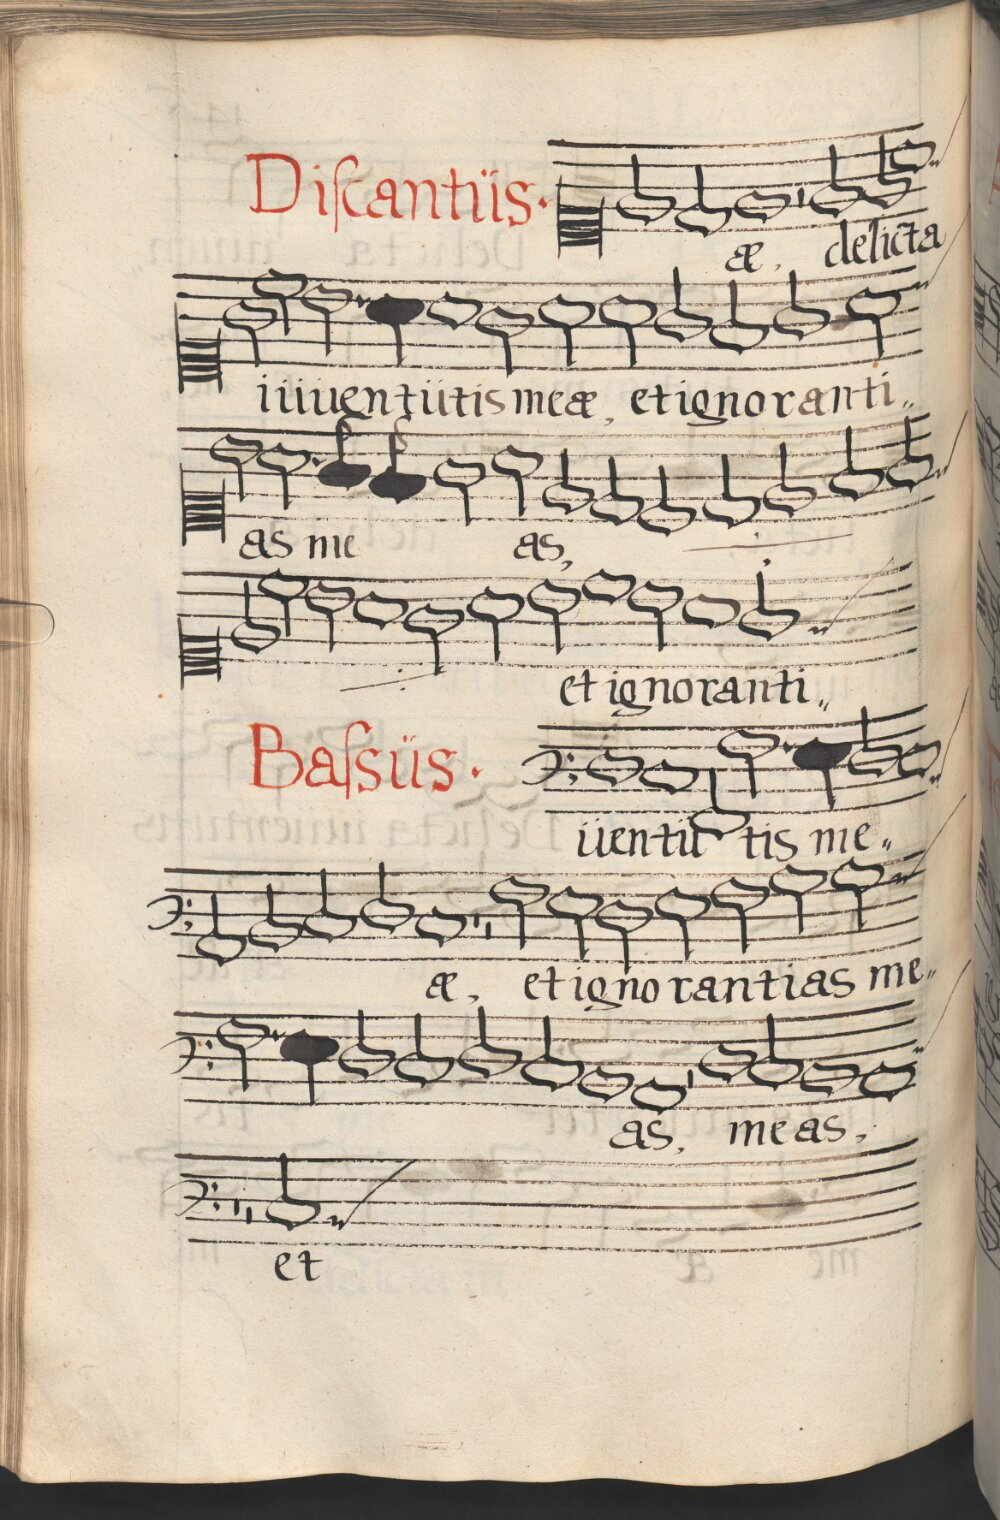 Diſcantüs.
æ, delicta
iüuentütis meæ, et ignoranti„
as me as,
et ignoranti„
Baſsüs.
üentü tis me„
æ, et ignorantias me„
as, meas,
et